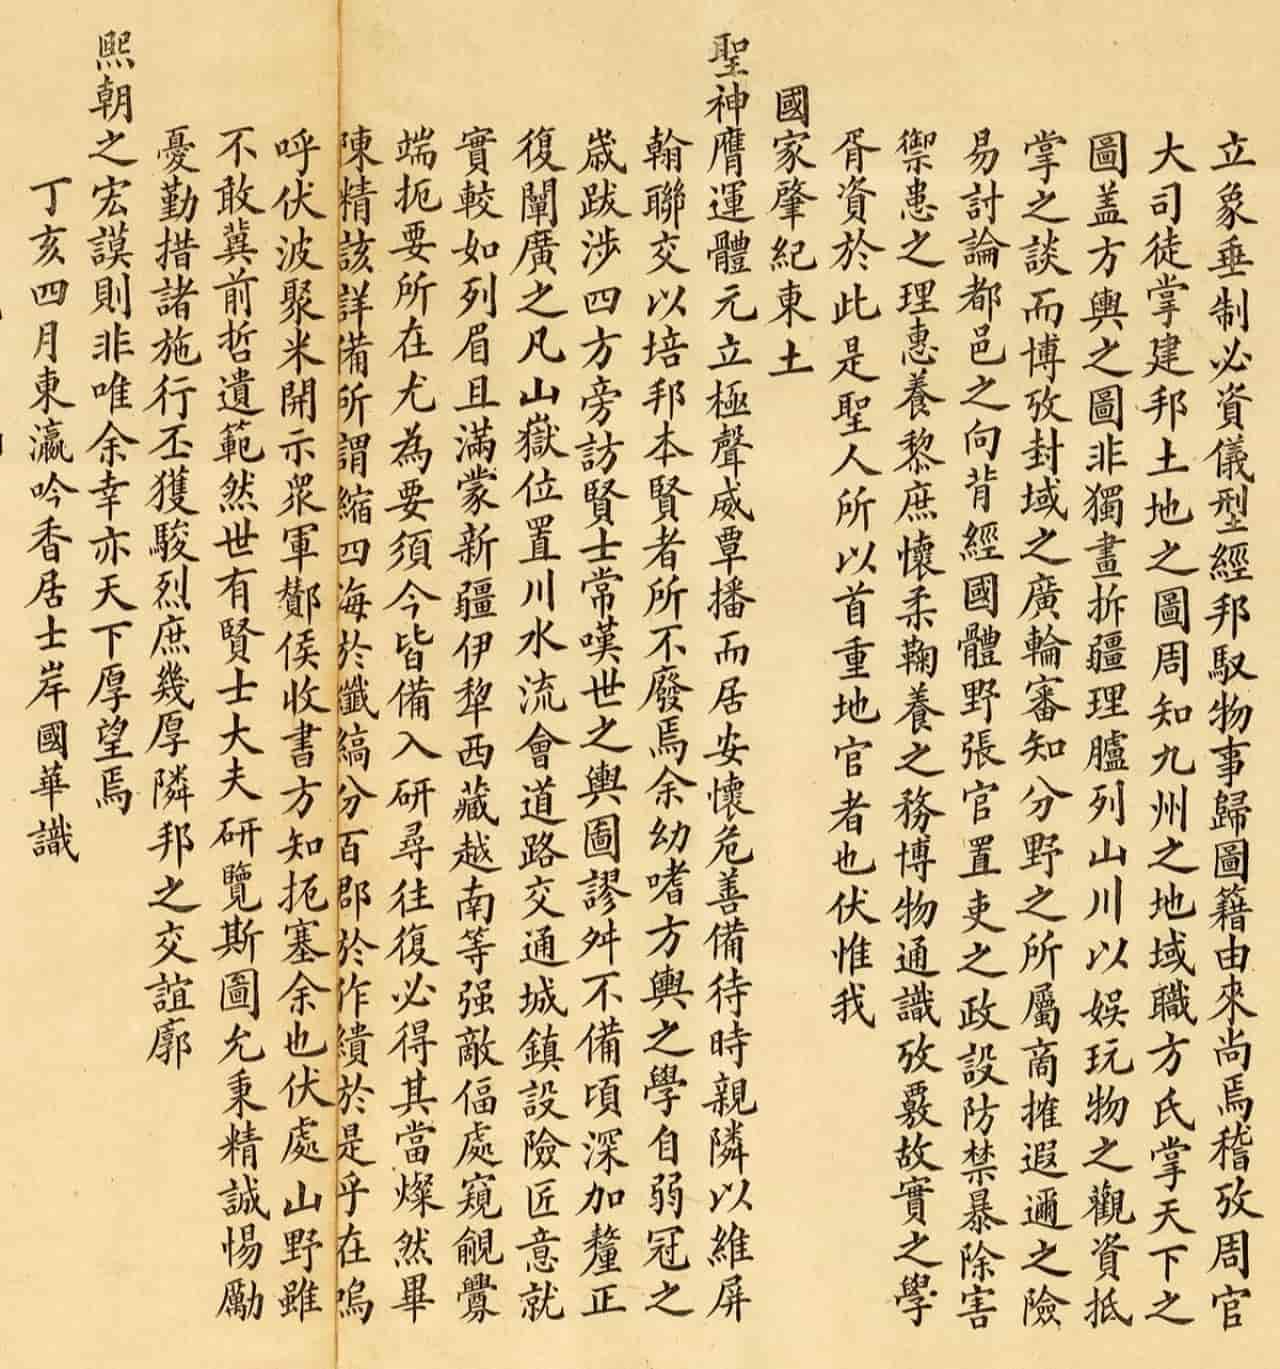 立象垂制必資儀型經邦馭物事歸圖籍由來尚焉稽攷周官
大司徒掌建邦土地之圖周知九州之地域職方氏掌天下之
圖盖方輿之圖非獨畫拆疆理臚列山川以娛玩物之觀資抵
掌之談而博攷封域之廣輪審知分野之所屬啇搉遐邇之險
易討論都邑之向背經國體野張官置吏之政設防禁暴除害
禦患之理惠養黎庶懷柔鞠養之務博物通識攷覈故實之學
胥資於此是聖人所以首重地官者也伏惟我
國家肇紀東土
聖神膺運體元立極聲威覃播而居安懷危善備待時親隣以維屏
翰聯交以培邦本賢者所不廢焉余幼嗜方輿之學自弱冠之
歲跋涉四方旁訪賢士常嘆世之輿圖謬舛不備頃深加釐正
復闡廣之凡山嶽位置川水流會道路交通城鎮設險匠意就
實較如列眉且滿蒙新疆伊犂西藏越南等强敵偪處窺覦釁
端扼要所在尤為要須今皆備入研尋往復必得其當燦然畢
陳精該詳備所謂縮四海於纖縞分百郡於作繢於是乎在嗚
呼伏波聚米開示眾軍酇侯收書方知扼塞余也伏處山野雖
不敢冀前哲遺範然世有賢士大夫研覽斯圖允秉精誠惕勵
憂勤措諸施行丕獲駿烈庶幾厚隣邦之交誼廓
熙朝之宏謨則非唯余幸亦天下厚望焉
丁亥四月東瀛吟香居士岸國華識